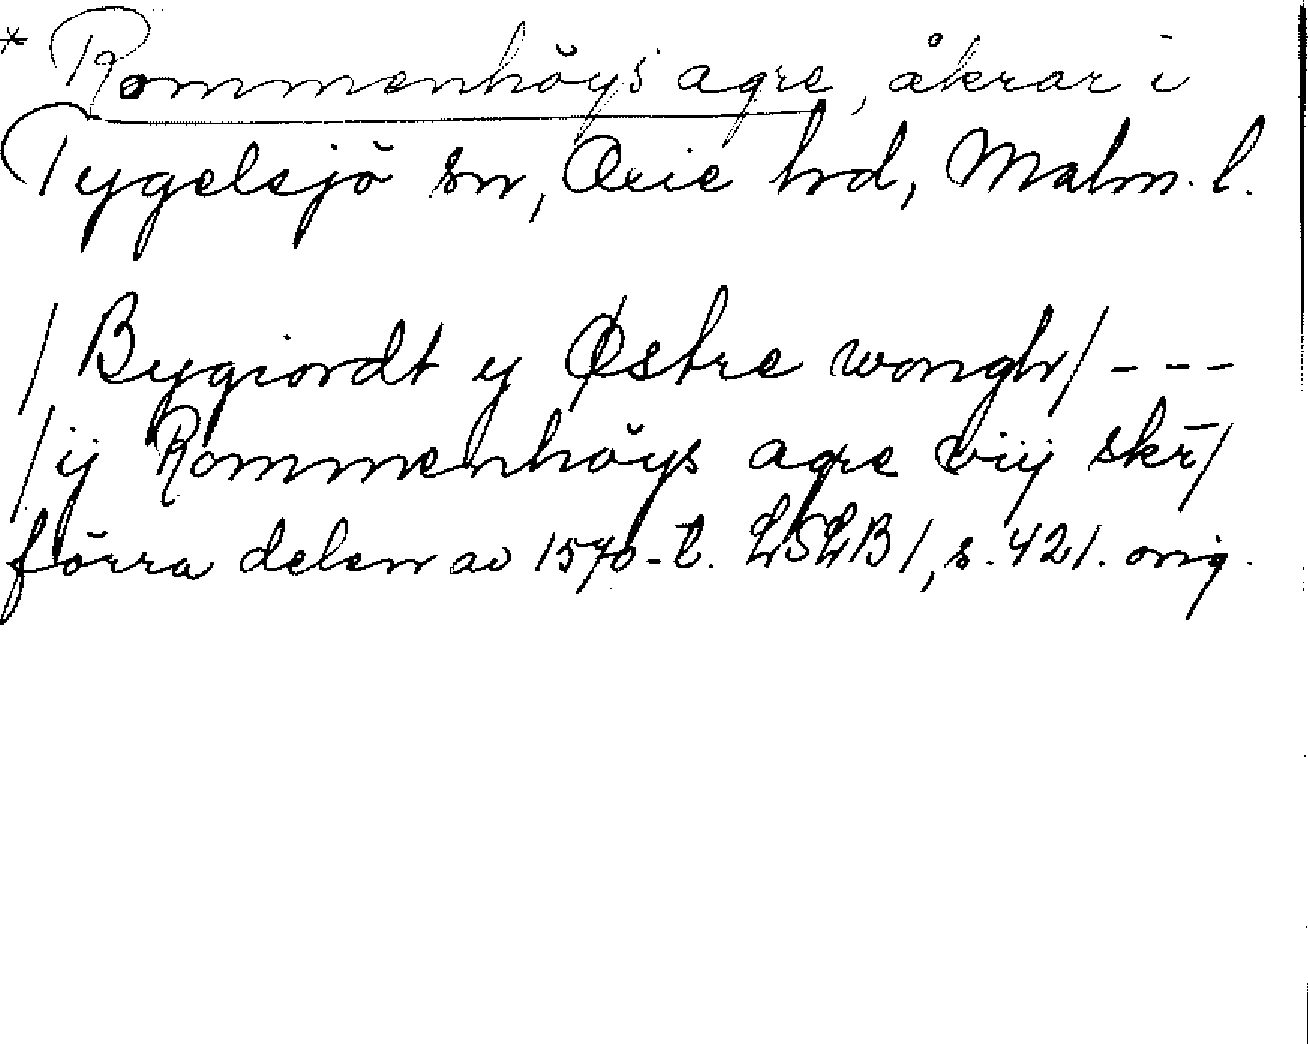 * Rommenhöys agre, åkrar i
Tygelsjö sn, Oxie hd, Malm. l.
/ Bygiordt y Østre wongh / - - -
/ ij Rommenhöys agre viij skr̄ /
förra delen av 1570-t. LSLB 1, s. 421. orig.